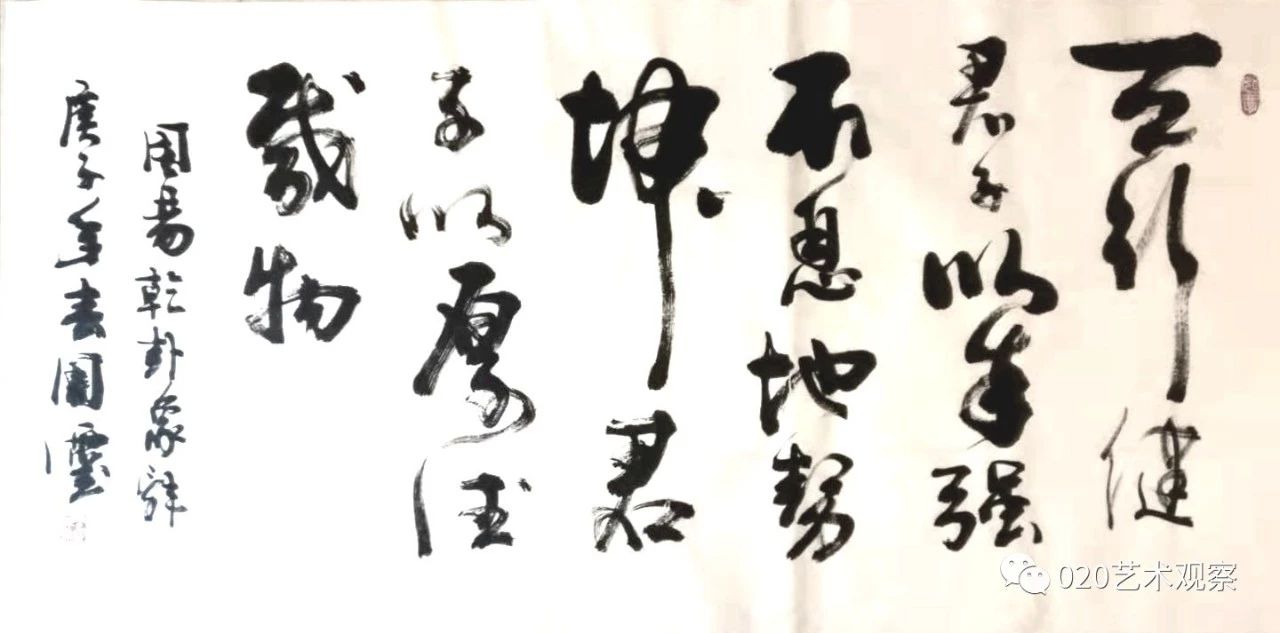 天行健
君子以自强
不息地势
坤君
子以厚德
载物
周易乾卦象辞
庚子年春
020艺术观察